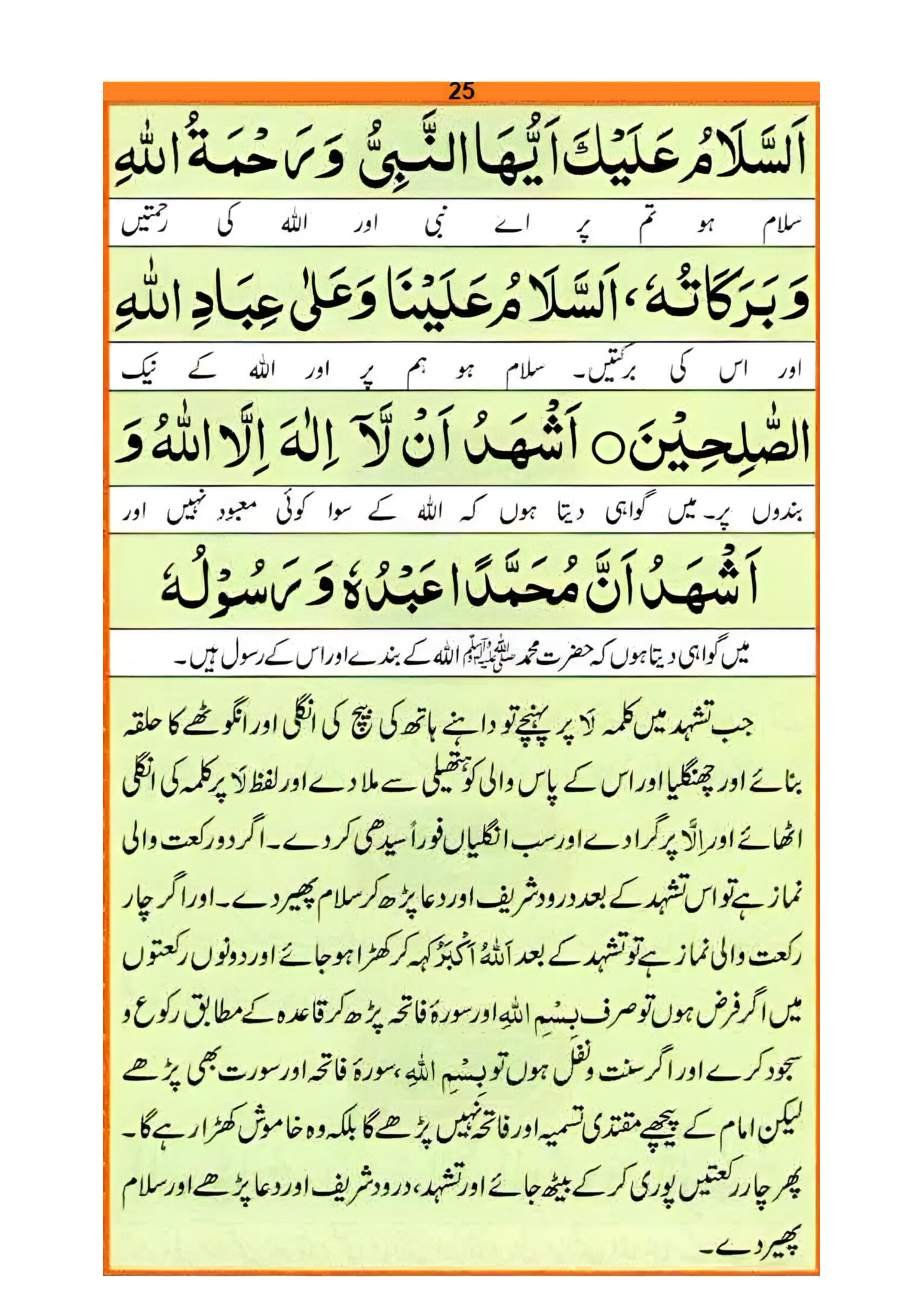 25
اَلسَّلَامُ عَلَيْكَ اَيُّهَا النَّبِیُّ وَرَحْمَةُ اللّٰهِ
سلام ہو تم پر اے نبی اور اللہ کی رحمتیں
وَبَرَكَاتُهٗ، اَلسَّلَامُ عَلَيْنَا وَعَلٰى عِبَادِ اللّٰهِ
اور اس کی برکتیں۔ سلام ہو ہم پر اور اللہ کے نیک
الصّٰلِحِيْنَ○ اَشْهَدُ اَنْ لَّآ اِلٰهَ اِلَّا اللّٰهُ وَ
بندوں پر۔ میں گواہی دیتا ہوں کہ اللہ کے سوا کوئی معبود نہیں اور
اَشْهَدُ اَنَّ مُحَمَّدًا عَبْدُهٗ وَرَسُوْلُهٗ
میں گواہی دیتا ہوں کہ حضرت محمد ﷺ اللہ کے بندے اور اس کے رسول ہیں۔
جب تشہد میں کلمہ لَا پر پہنچے تو داہنے ہاتھ کی بیچ کی انگلی اور انگوٹھے کا حلقہ
بنائے اور چھنگلیا اور اس کے پاس والی کو ہتھیلی سے ملا دے اور لفظ لَا پر کلمہ کی انگلی
اٹھائے اور اِلَّا پر گرا دے اور سب انگلیاں فوراً سیدھی کر دے۔ اگر دو رکعت والی
نماز ہے تو اس تشہد کے بعد درود شریف اور دعا پڑھ کر سلام پھیر دے۔ اور اگر چار
رکعت والی نماز ہے تو تشہد کے بعد اَللّٰهُ اَكْبَرُ کہہ کر کھڑا ہو جائے اور دونوں رکعتوں
میں اگر فرض ہوں تو صرف بِسْمِ اللّٰهِ اور سورۂ فاتحہ پڑھ کر قاعدہ کے مطابق رکوع و
سجود کرے اور اگر سنت و نفل ہوں تو بِسْمِ اللّٰهِ، سورۂ فاتحہ اور سورت بھی پڑھے
لیکن امام کے پیچھے مقتدی تسمیہ اور فاتحہ نہیں پڑھے گا بلکہ وہ خاموش کھڑا رہے گا۔
پھر چار رکعتیں پوری کر کے بیٹھ جائے اور تشہد، درود شریف اور دعا پڑھے اور سلام
پھیر دے۔